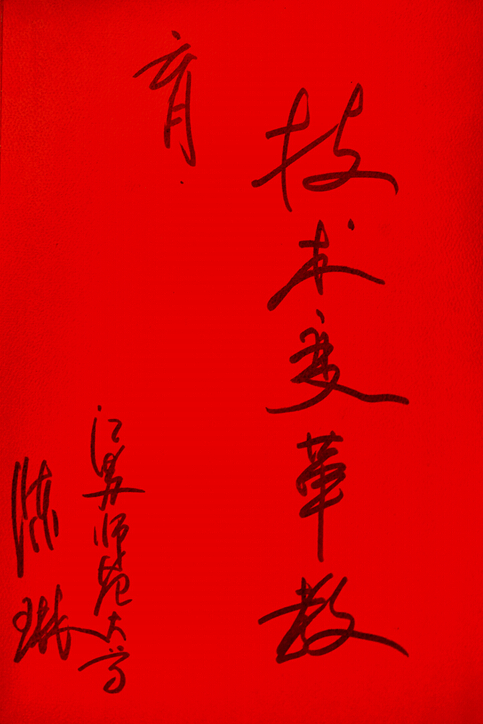 技术变革教
育
江苏师范大学
陈琳